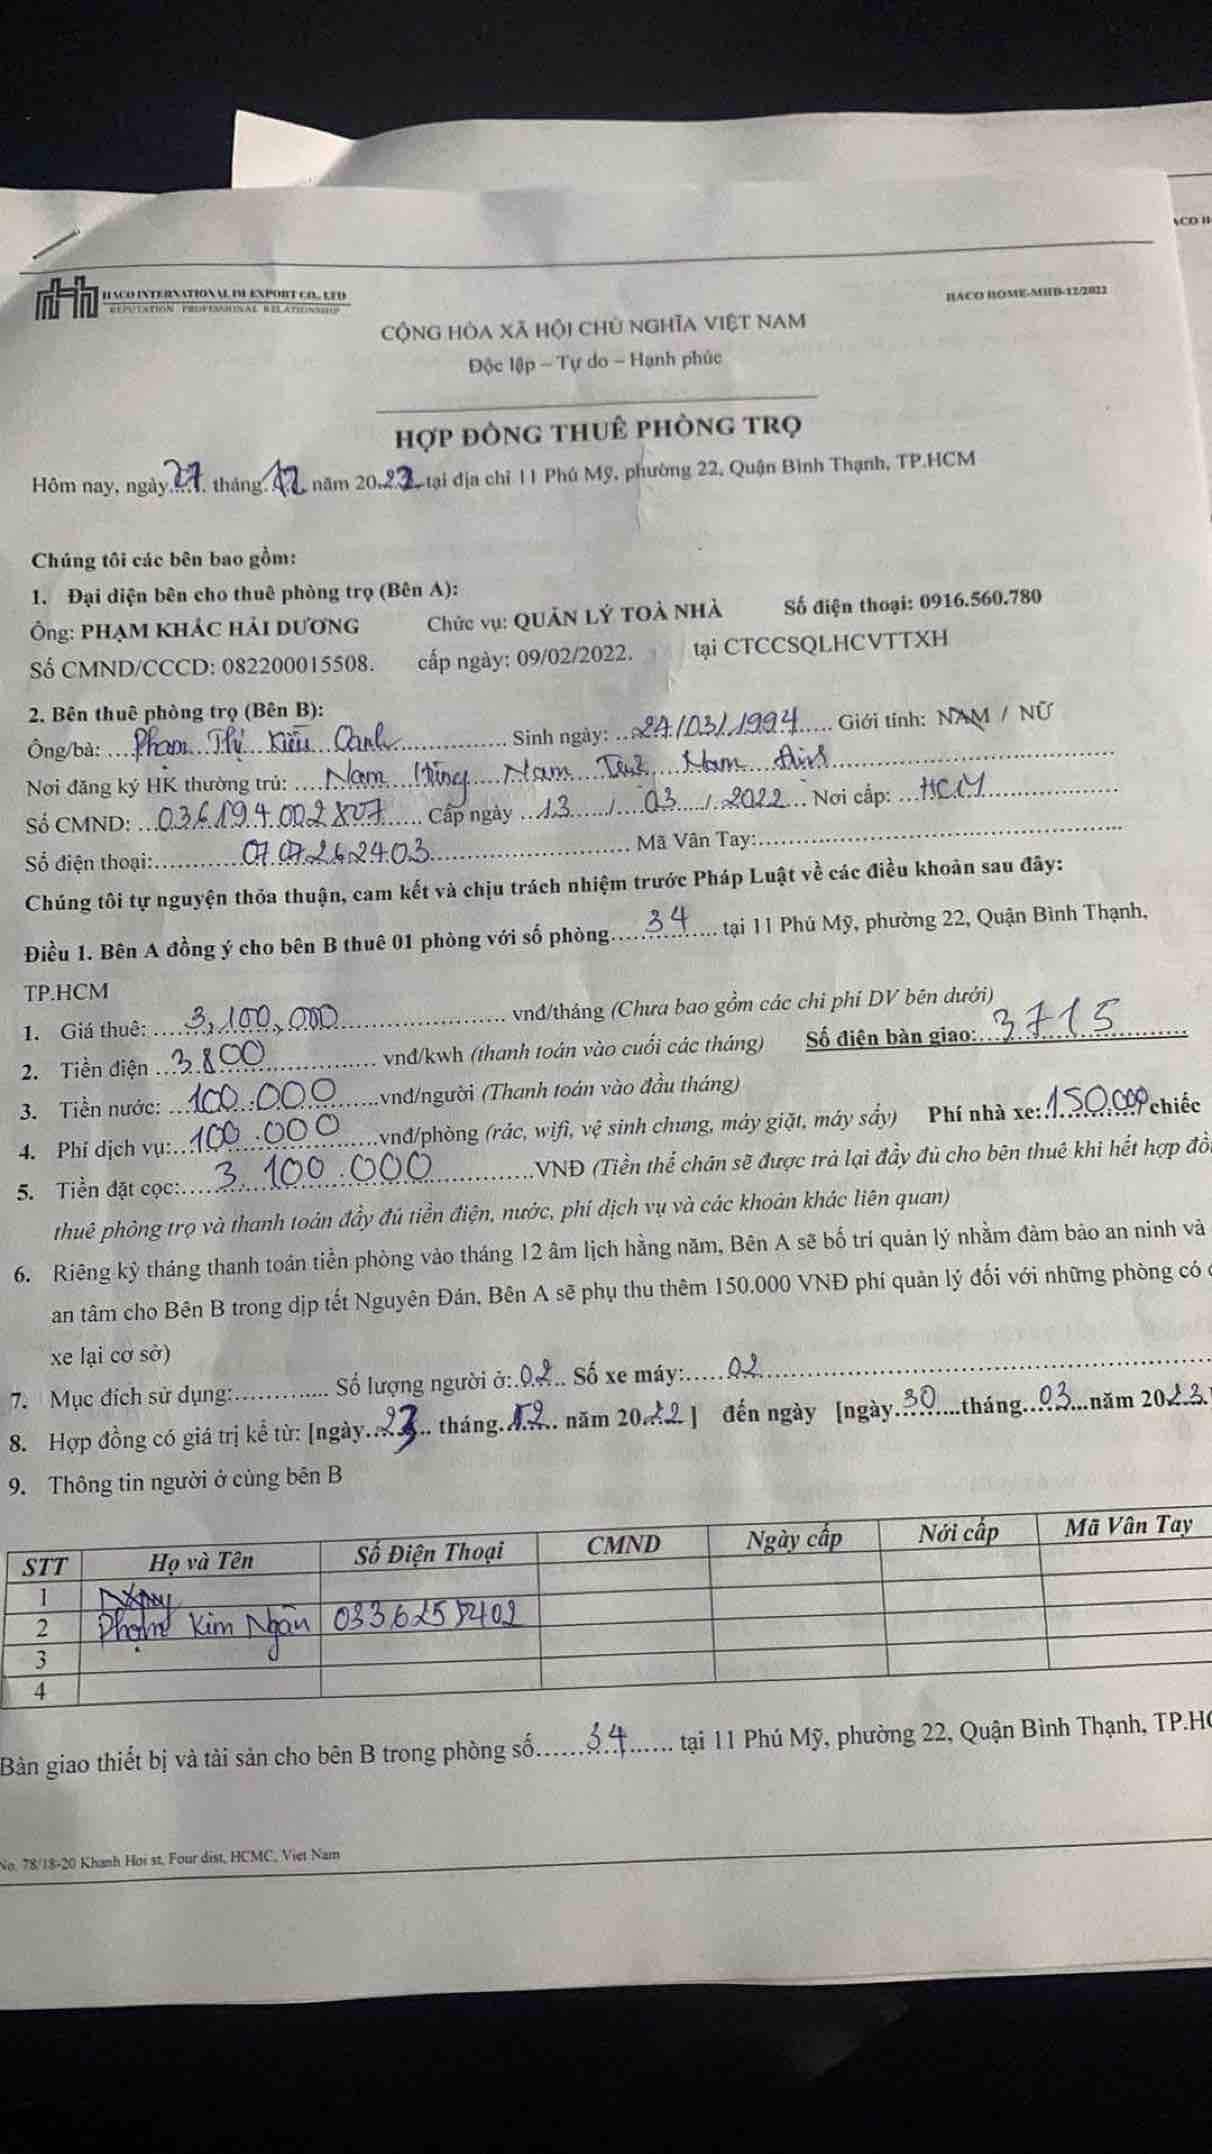 ACO H
HACO INTERNATIONAL IM EXPORT CO., LTD
REPUTATION PROFESSIONAL RELATIONSHIP
HACO HOME-MHD-12/2022
CỘNG HÒA XÃ HỘI CHỦ NGHĨA VIỆT NAM
Độc lập – Tự do – Hạnh phúc
HỢP ĐỒNG THUÊ PHÒNG TRỌ
Hôm nay, ngày 27 tháng 12 năm 2022 tại địa chỉ 11 Phú Mỹ, phường 22, Quận Bình Thạnh, TP.HCM
Chúng tôi các bên bao gồm:
1. Đại diện bên cho thuê phòng trọ (Bên A):
Ông: PHẠM KHẮC HẢI DƯƠNG Chức vụ: QUẢN LÝ TOÀ NHÀ Số điện thoại: 0916.560.780
Số CMND/CCCD: 082200015508. cấp ngày: 09/02/2022. tại CTCCSQLHCVTTXH
2. Bên thuê phòng trọ (Bên B):
Ông/bà: Phạm Thị Kiều Oanh Sinh ngày: 27/03/1994 Giới tính: NAM / NỮ
Nơi đăng ký HK thường trú: Nam Hồng Nam Trực Nam Định
Số CMND: 036194002807 Cấp ngày 13 / 03 / 2022 Nơi cấp: HCM
Số điện thoại: 0707262403 Mã Vân Tay:
Chúng tôi tự nguyện thỏa thuận, cam kết và chịu trách nhiệm trước Pháp Luật về các điều khoản sau đây:
Điều 1. Bên A đồng ý cho bên B thuê 01 phòng với số phòng 34 tại 11 Phú Mỹ, phường 22, Quận Bình Thạnh,
TP.HCM
1. Giá thuê: 3,100,000 vnđ/tháng (Chưa bao gồm các chi phí DV bên dưới)
2. Tiền điện 3.800 vnđ/kwh (thanh toán vào cuối các tháng) Số điện bàn giao: 3715
3. Tiền nước: 100.000 vnđ/người (Thanh toán vào đầu tháng)
4. Phí dịch vụ: 100.000 vnđ/phòng (rác, wifi, vệ sinh chung, máy giặt, máy sấy) Phí nhà xe: 150.000/chiếc
5. Tiền đặt cọc: 3.100.000 VNĐ (Tiền thế chân sẽ được trả lại đầy đủ cho bên thuê khi hết hợp đồ
thuê phòng trọ và thanh toán đầy đủ tiền điện, nước, phí dịch vụ và các khoản khác liên quan)
6. Riêng kỳ tháng thanh toán tiền phòng vào tháng 12 âm lịch hằng năm, Bên A sẽ bố trí quản lý nhằm đảm bảo an ninh và
an tâm cho Bên B trong dịp tết Nguyên Đán, Bên A sẽ phụ thu thêm 150.000 VNĐ phí quản lý đối với những phòng có
xe lại cơ sở)
7. Mục đích sử dụng: Số lượng người ở: 02 Số xe máy: 02
8. Hợp đồng có giá trị kể từ: [ngày 27 tháng 12 năm 2022] đến ngày [ngày 30 tháng 03 năm 2023
9. Thông tin người ở cùng bên B
STT Họ và Tên Số Điện Thoại CMND Ngày cấp Nới cấp Mã Vân Tay
1
2 Phạm Kim Ngân 0336257402
3
4
Bàn giao thiết bị và tài sản cho bên B trong phòng số 34 tại 11 Phú Mỹ, phường 22, Quận Bình Thạnh, TP.HC
No. 78/18-20 Khanh Hoi st, Four dist, HCMC, Viet Nam